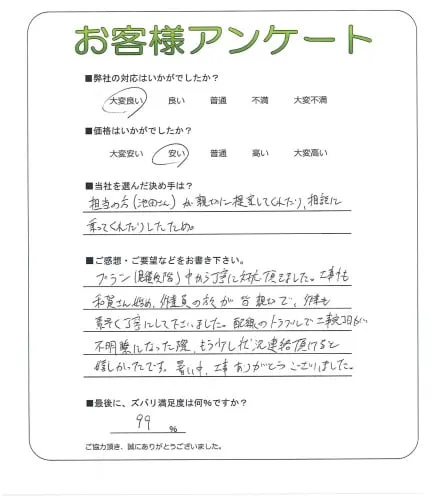 お客様アンケート
■弊社の対応はいかがでしたか？
大変良い 良い 普通 不満 大変不満
■価格はいかがでしたか？
大変安い 安い 普通 高い 大変高い
■当社を選んだ決め手は？
担当の方(池田さん)が親切に提案してくれたり、相談に
乗ってくれたりしたため。
■ご感想・ご要望などをお書き下さい。
プラン(見積段階)中から丁寧に対応頂きました。工事も
和賀さん始め、作業員の方が皆親切で、作業も
素早く丁寧にして下さいました。配線のトラブルで工期が
不明瞭になった際、もう少し状況連絡頂けると
嬉しかったです。暑い中、工事ありがとうございました。
■最後に、ズバリ満足度は何％ですか？
99 ％
ご協力頂き、誠にありがとうございました。